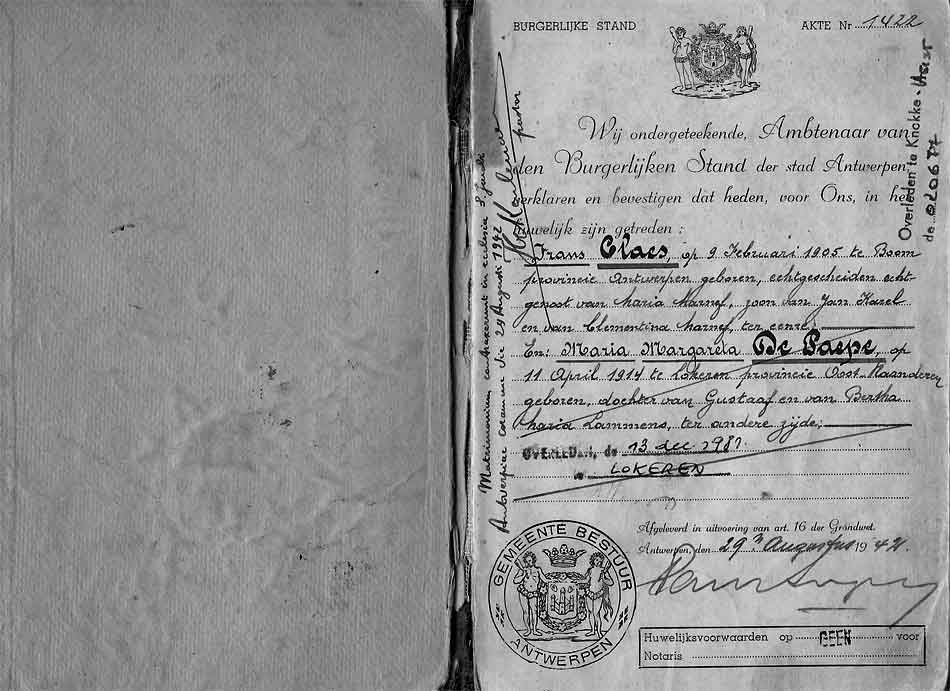 BURGERLIJKE STAND
AKTE Nr 1422
Wij ondergeteekende, Ambtenaar van
den Burgerlijken Stand der stad Antwerpen
verklaren en bevestigen dat heden, voor Ons, in het
huwelijk zijn getreden :
Frans Claes, op 9 Februari 1905 te Boom
provincie Antwerpen geboren, echtgescheiden echt-
genoot van Maria Marnef, zoon van Jan Karel
en van Clementina Marnef, ter eenre;
En: Maria Margareta De Paepe, op
11 April 1914 te Lokeren provincie Oost-Vlaanderen
geboren, dochter van Gustaaf en van Bertha
Maria Lammens, ter andere zijde;
OVERLEDEN, de 13 dec 1981
te LOKEREN
Afgeleverd in uitvoering van art. 16 der Grondwet.
Antwerpen, den 29n Augustus 1942.
GEMEENTE BESTUUR
ANTWERPEN
Huwelijksvoorwaarden op GEEN voor
Notaris
Matrimonium contraxerunt in ecclesia S.
Antwerpiae coram me die 29 Augusti 1942
pastor
Overleden te Knokke-Heist
de 020677